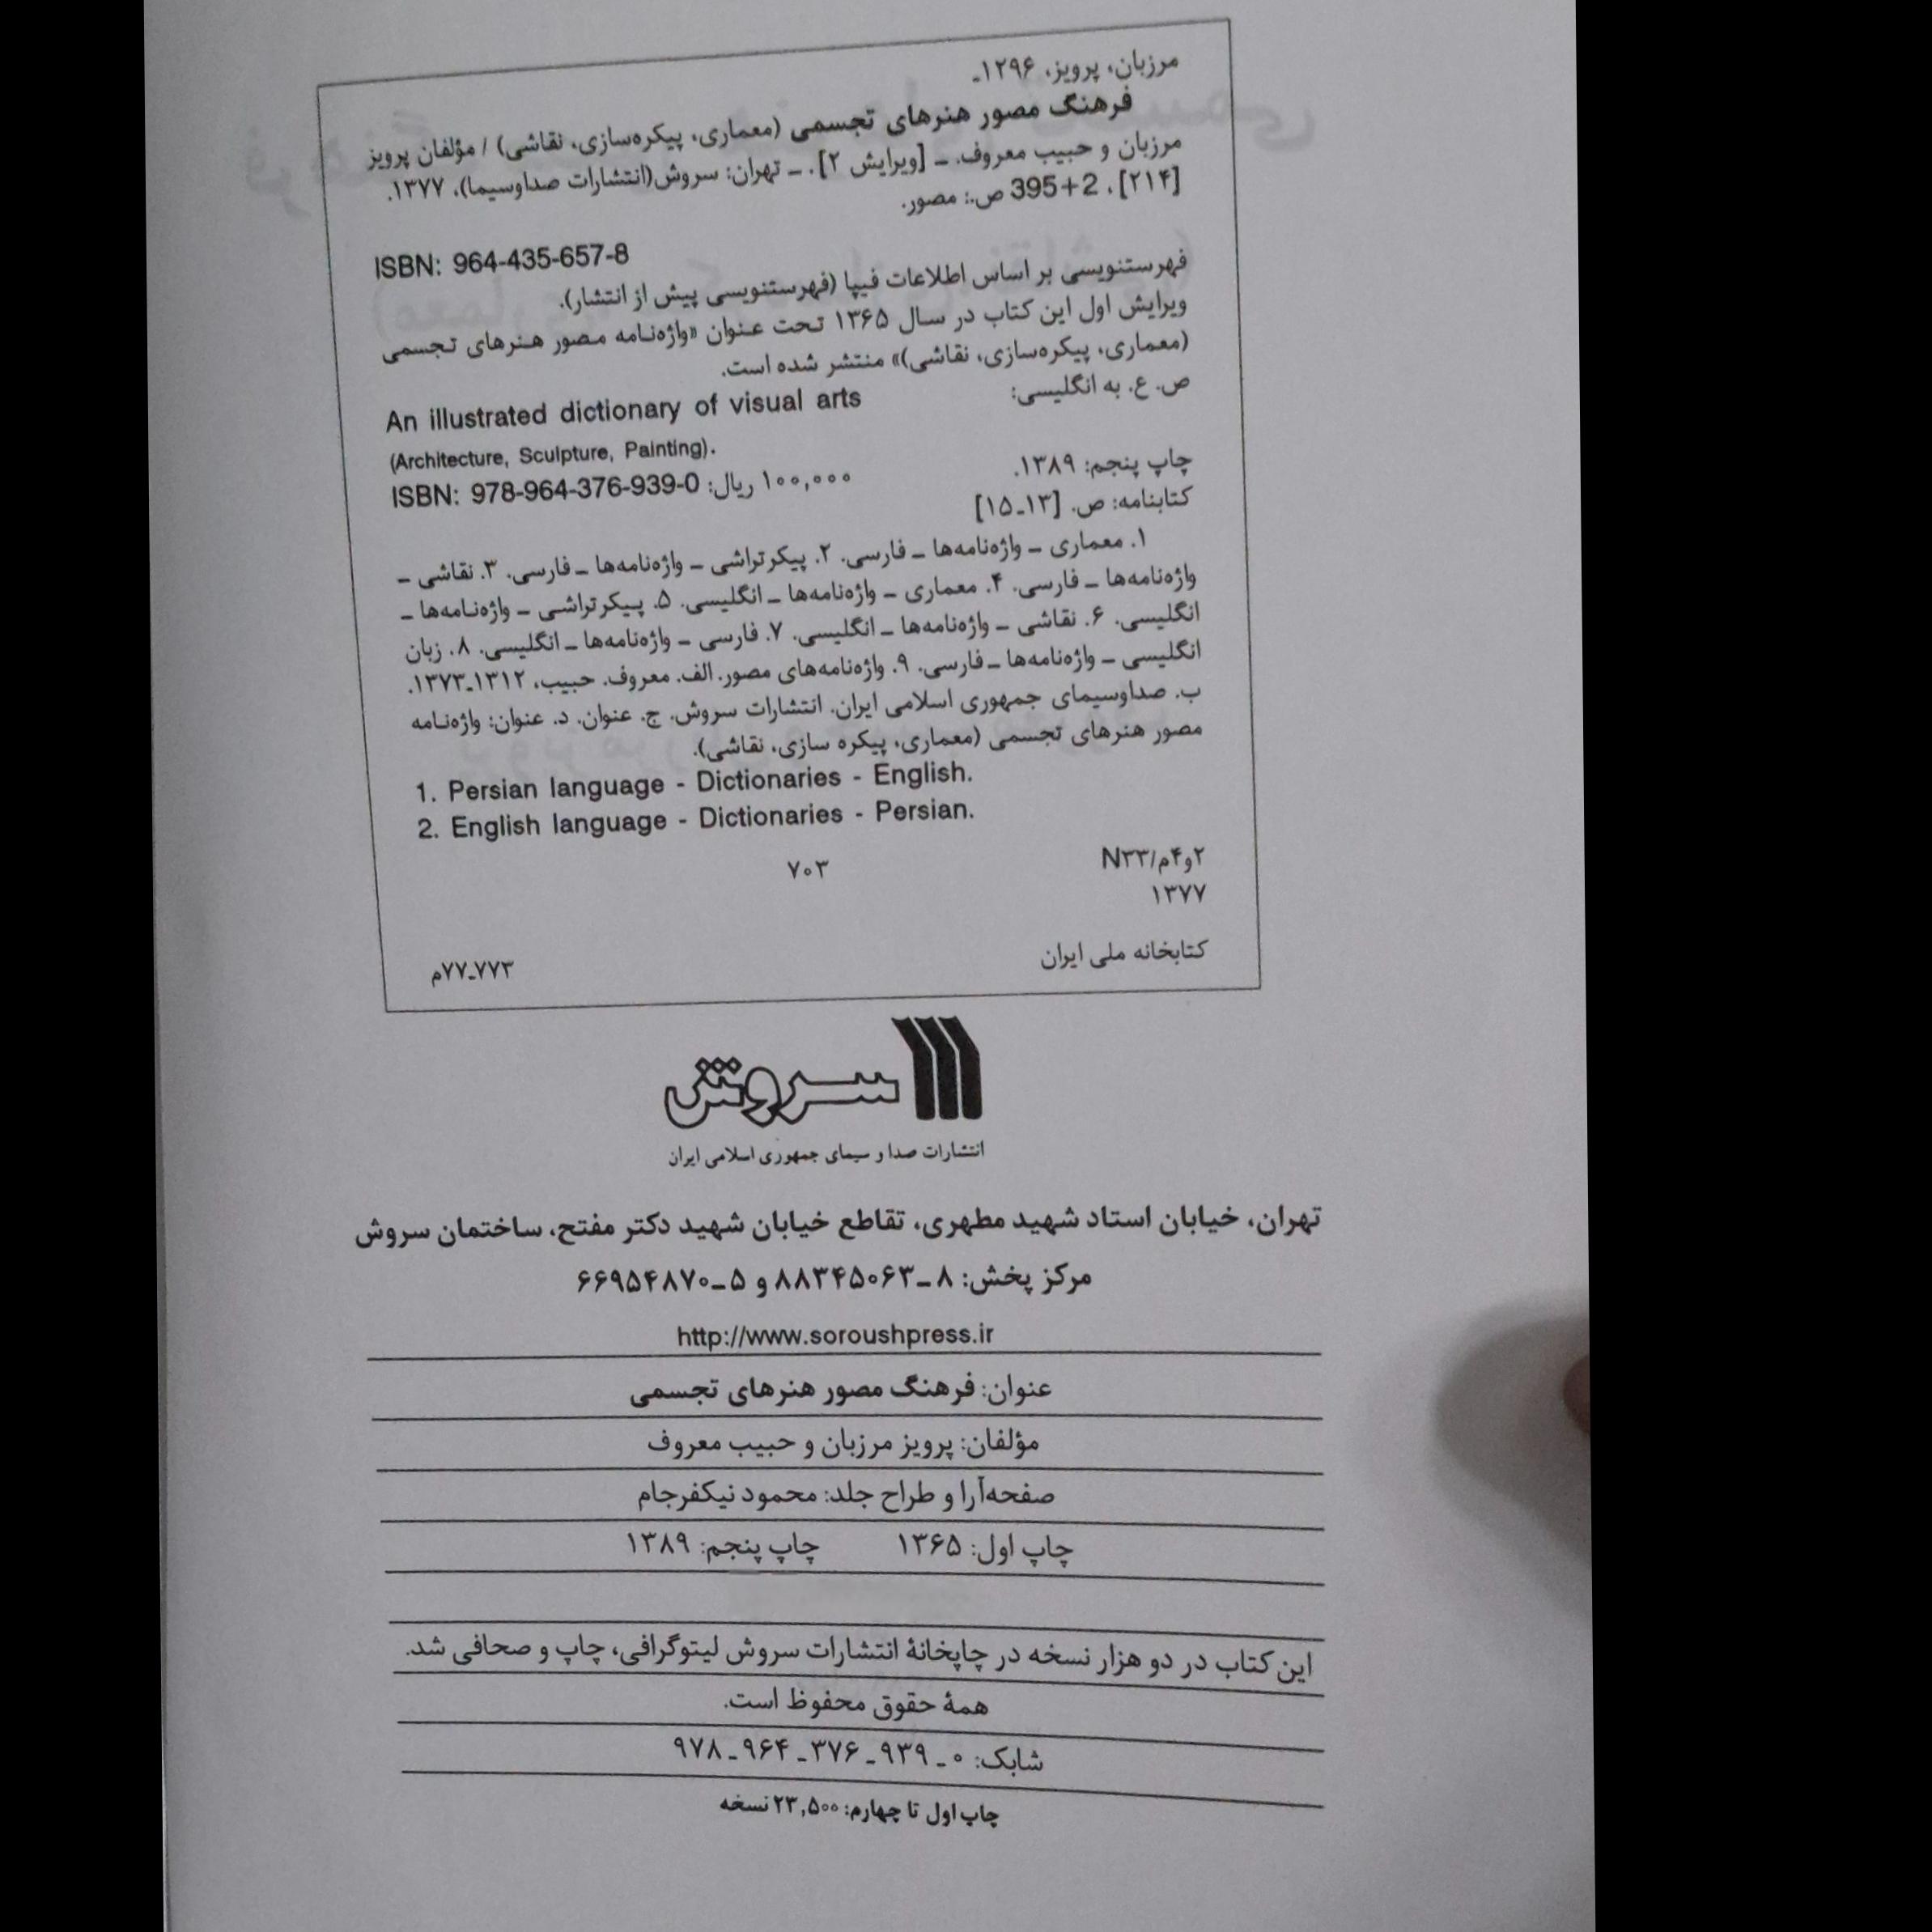 مرزبان، پرویز، ۱۲۹۶ـ
فرهنگ مصور هنرهای تجسمی (معماری، پیکره‌سازی، نقاشی) / مؤلفان پرویز
مرزبان و حبیب معروف. ـ [ویرایش ۲]. ـ تهران: سروش(انتشارات صداوسیما)، ۱۳۷۷.
[۲۱۴]، 2+395 ص.: مصور.
ISBN: 964-435-657-8
فهرستنویسی بر اساس اطلاعات فیپا (فهرستنویسی پیش از انتشار).
ویرایش اول این کتاب در سال ۱۳۶۵ تحت عنوان «واژه‌نامه مصور هنرهای تجسمی
(معماری، پیکره‌سازی، نقاشی)» منتشر شده است.
ص. ع. به انگلیسی:
An illustrated dictionary of visual arts
(Architecture, Sculpture, Painting).
چاپ پنجم: ۱۳۸۹.
ISBN: 978-964-376-939-0 :ریال ۱۰۰,۰۰۰
کتابنامه: ص. [۱۳ـ۱۵]
۱. معماری ـ واژه‌نامه‌ها ـ فارسی. ۲. پیکرتراشی ـ واژه‌نامه‌ها ـ فارسی. ۳. نقاشی ـ
واژه‌نامه‌ها ـ فارسی. ۴. معماری ـ واژه‌نامه‌ها ـ انگلیسی. ۵. پیکرتراشی ـ واژه‌نامه‌ها ـ
انگلیسی. ۶. نقاشی ـ واژه‌نامه‌ها ـ انگلیسی. ۷. فارسی ـ واژه‌نامه‌ها ـ انگلیسی. ۸. زبان
انگلیسی ـ واژه‌نامه‌ها ـ فارسی. ۹. واژه‌نامه‌های مصور. الف. معروف. حبیب، ۱۳۱۲ـ۱۳۷۳.
ب. صداوسیمای جمهوری اسلامی ایران. انتشارات سروش. ج. عنوان. د. عنوان: واژه‌نامه
مصور هنرهای تجسمی (معماری، پیکره سازی، نقاشی).
1. Persian language - Dictionaries - English.
2. English language - Dictionaries - Persian.
۲و۴م/N۳۳
۷۰۳
۱۳۷۷
کتابخانه ملی ایران
۷۷۳ـ۷۷م
سروش
انتشارات صدا و سیمای جمهوری اسلامی ایران
تهران، خیابان استاد شهید مطهری، تقاطع خیابان شهید دکتر مفتح، ساختمان سروش
مرکز پخش: ۸ـ۸۸۳۴۵۰۶۳ و ۵ـ۶۶۹۵۴۸۷۰
http://www.soroushpress.ir
عنوان: فرهنگ مصور هنرهای تجسمی
مؤلفان: پرویز مرزبان و حبیب معروف
صفحه‌آرا و طراح جلد: محمود نیکفرجام
چاپ اول: ۱۳۶۵ چاپ پنجم: ۱۳۸۹
این کتاب در دو هزار نسخه در چاپخانهٔ انتشارات سروش لیتوگرافی، چاپ و صحافی شد.
همهٔ حقوق محفوظ است.
شابک: ۰ـ۹۳۹ـ۳۷۶ـ۹۶۴ـ۹۷۸
چاپ اول تا چهارم: ۲۳,۵۰۰ نسخه